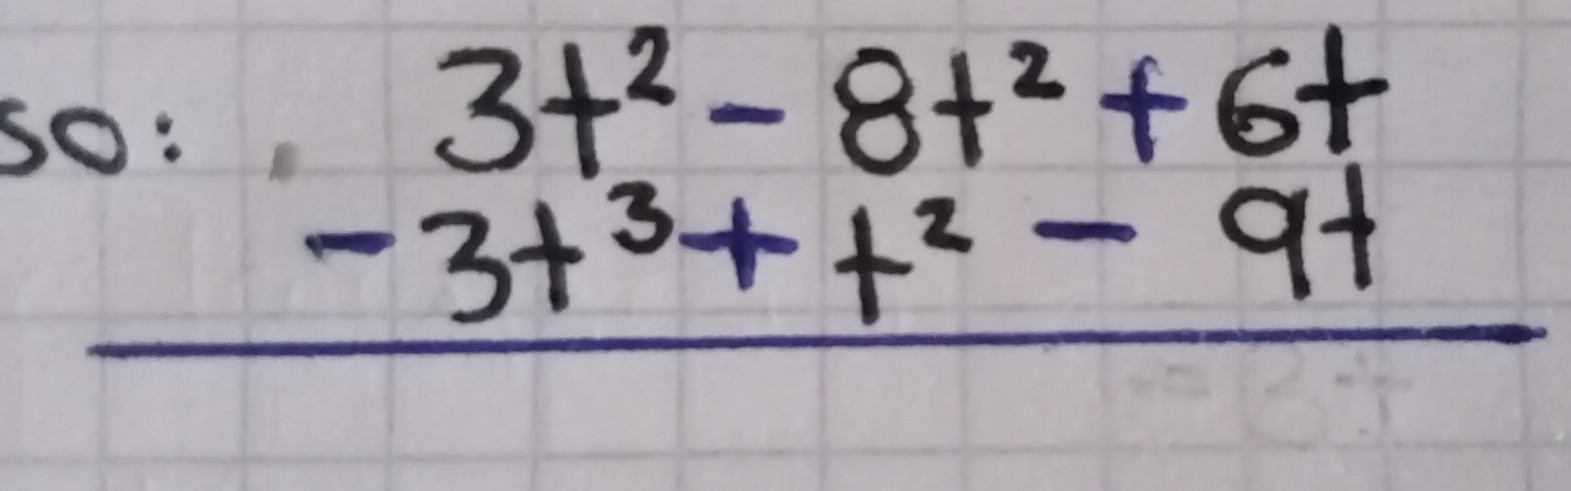 so: 3t² - 8t² + 6t
- 3t³ + t² - 9t